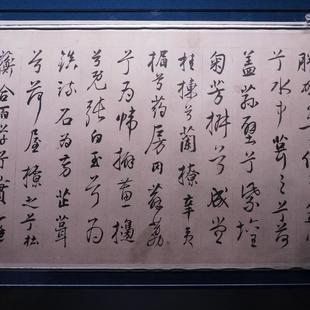 兮水中葺之兮荷
蓋蓀壁兮紫壇
匊芳椒兮成堂
桂棟兮蘭橑辛夷
楣兮葯房罔薜荔
兮為帷擗蕙櫋
兮既張白玉兮為
鎮疏石為芳芷葺
兮荷屋繚之兮杜
蘅合百草兮實庭